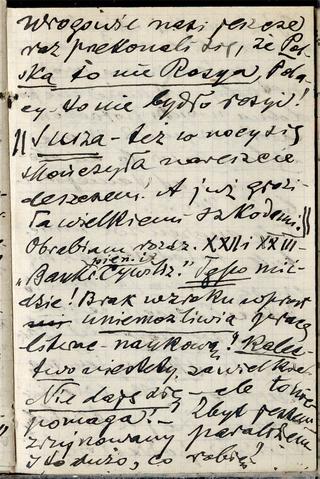 Wrogowie nasi jeszcze
raz przekonali się, że Pol-
ska to nie Rosya, Pola-
cy - to nie bydło rosyj!
Susza - też w nocy się
skończyła nareszcie
deszczem. A już grozi-
ła wielkiemi szkodami.
Obrabiam rozdz. XXII i XXIII -
pien. i z
"Banki Cywiliz." Tępo mi i-
dzie! Brak wzroku wprost
uniemożliwia pracę
liter.- naukową! Kalec-
two niestety za wielkie.
Nie daję się - ale to nie
pomaga! - Zbyt jestem
zrujnowany paraliżem
I to dużo, co robię!